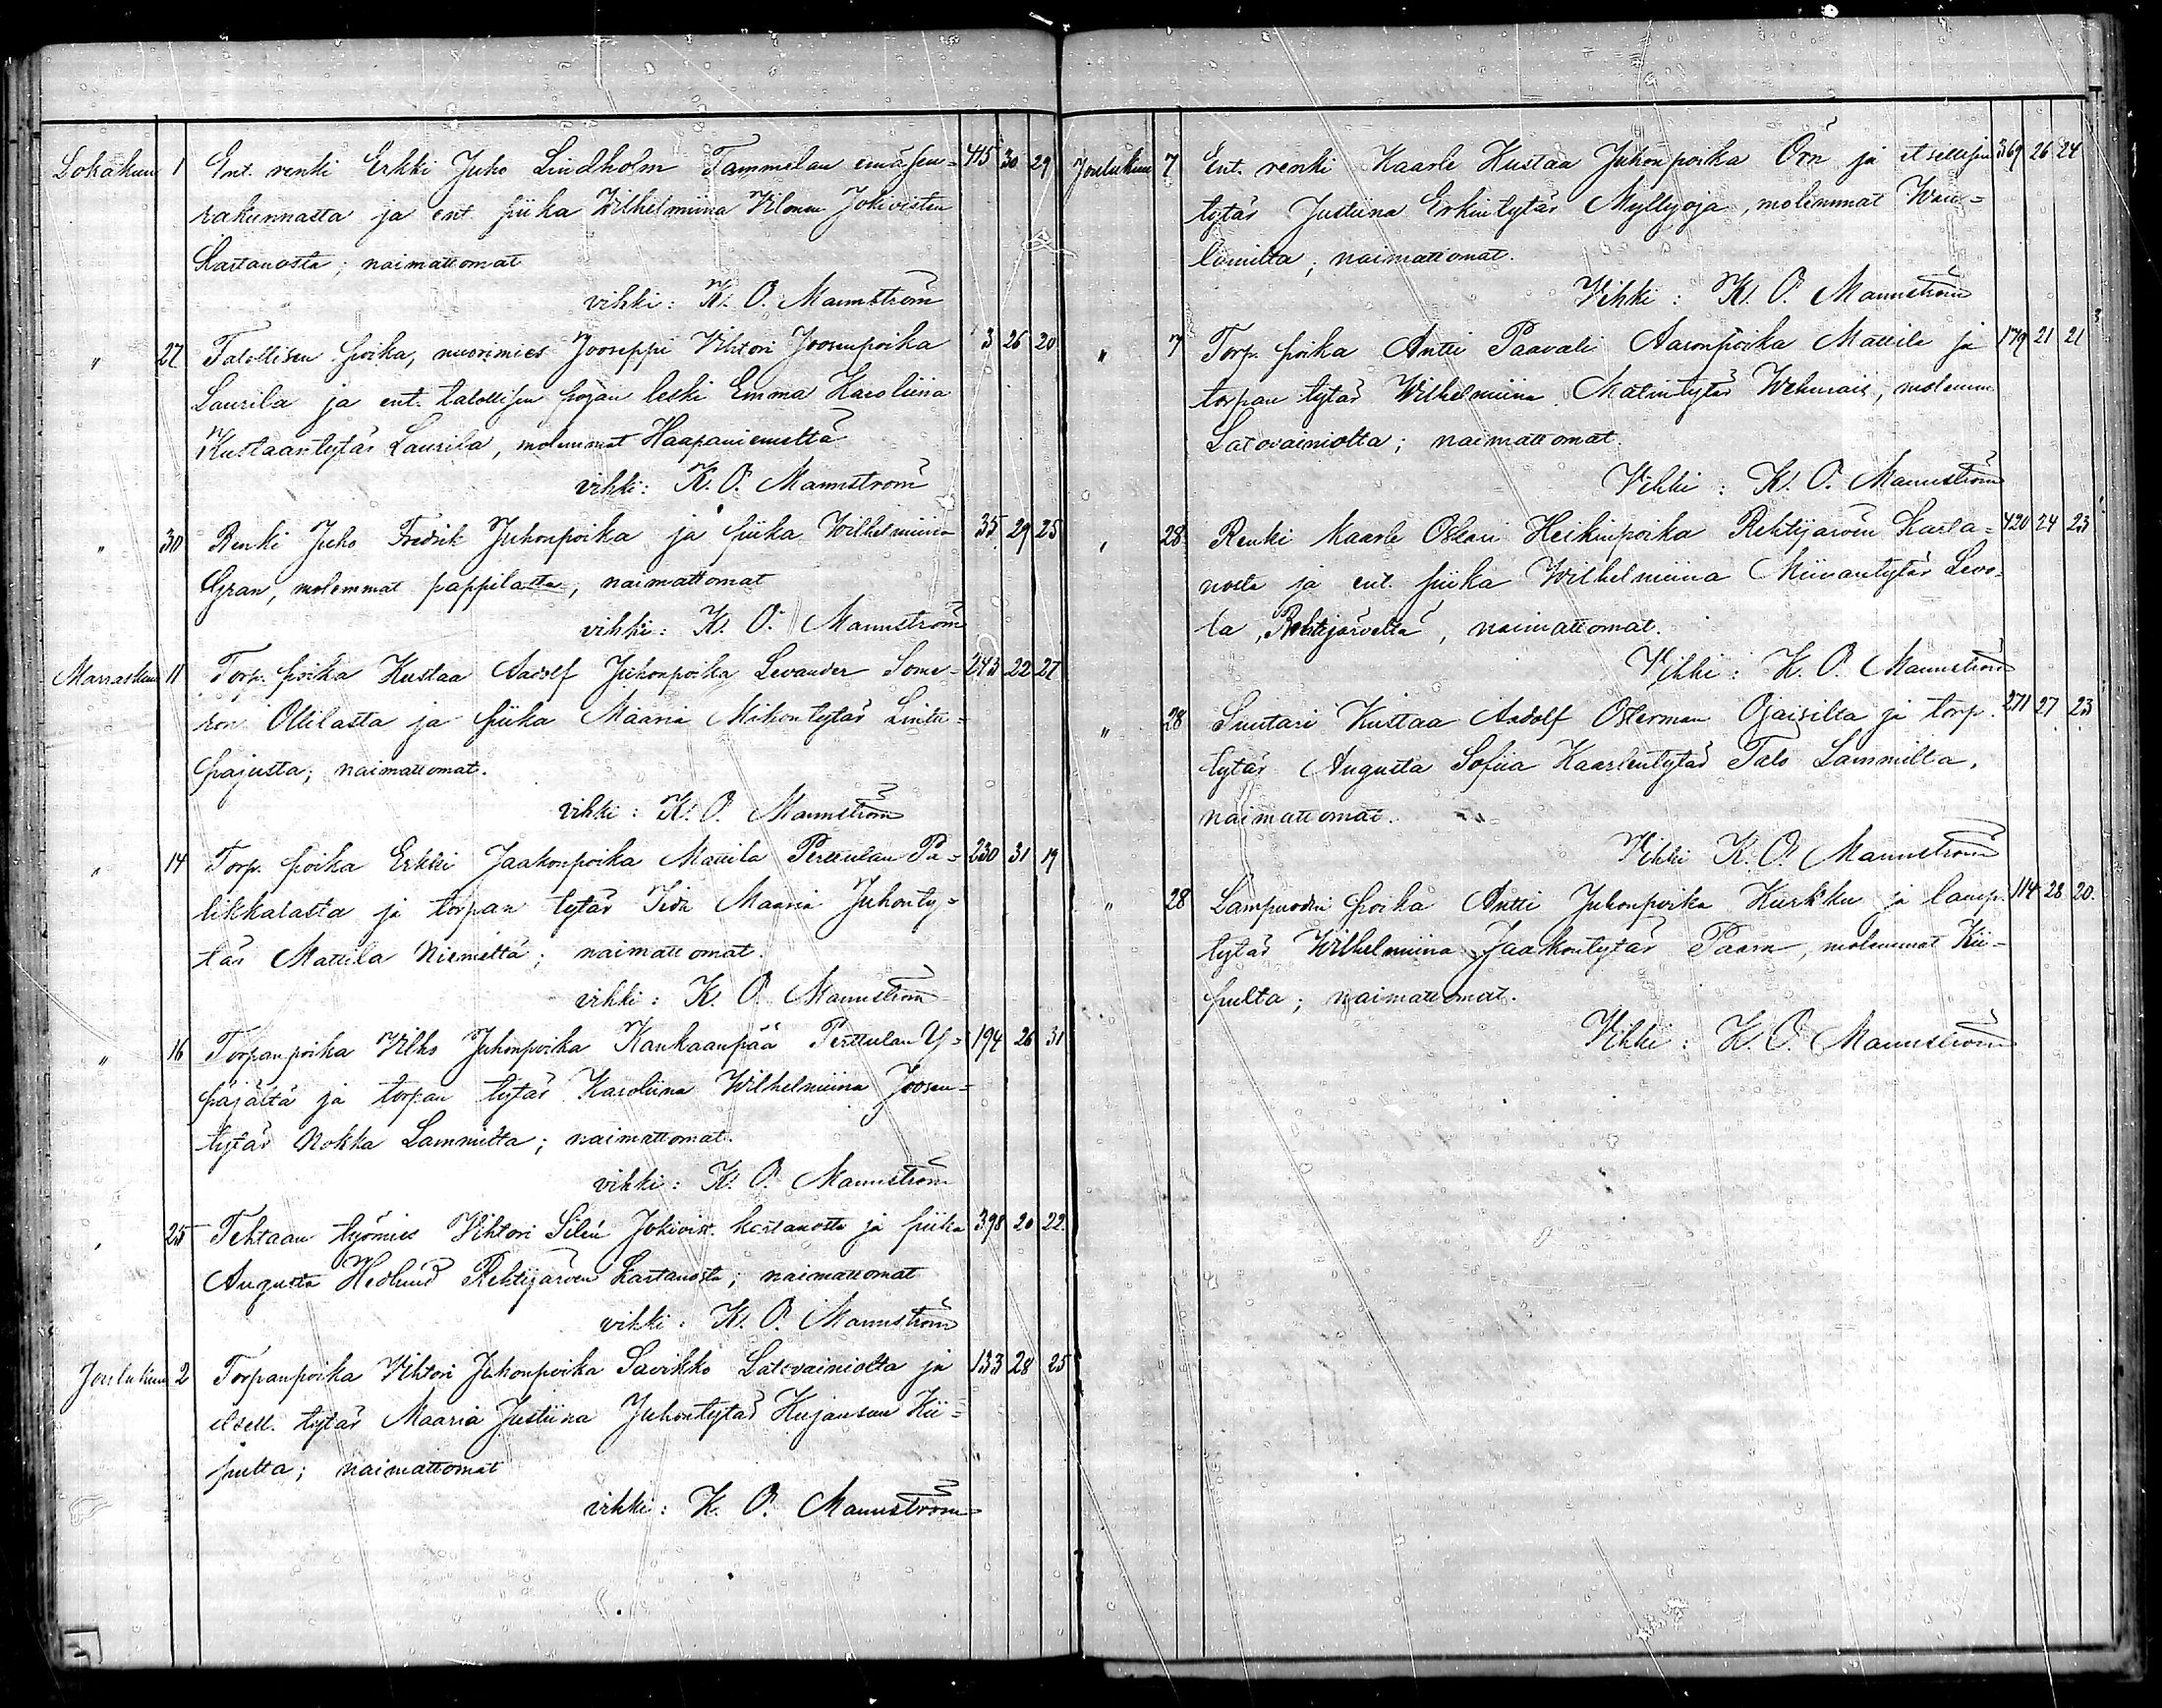 Lokakuun 1 Ent. renki Erkki Juho Lindholm Tammelan emäseu= 415 30 29
rakunnasta ja ent. piika Wilhelmiina Vilenin Jokioisten
Kartanosta; naimattomat
vihki: K. O. Mannström
" 27 Talollisen poika, nuorimies Jooseppi Vihtori Joosenpoika 3 26 20
Laurila ja ent. talollisen pojan leski Emma Karoliina
Kustaantytär Laurila, molemmat Haapaniemeltä
vihki: K. O. Mannström
" 30 Renki Juho Fredrik Juhonpoika ja piika Wilhelmiina 35 29 25
Gran, molemmat pappilasta, naimattomat
vihki: K. O. Mannström
Marraskuun 11 Torp. poika Kustaa Aadolf Juhonpoika Levander Some= 243 22 27
ron Ollilasta ja piika Maaria Mikontytär Lintu=
pajusta; naimattomat.
vihki: K. O. Mannström
" 14 Torp. poika Erkki Jaakonpoika Mattila Perttulan Pu= 230 31 19
likkalasta ja torpan tytär Iida Maaria Juhonty=
tär Mattila Niemeltä; naimattomat.
vihki: K. O. Mannström
" 16 Torpanpoika Vilho Juhonpoika Kankaanpää Perttulan Y= 194 26 31
päjältä ja torpan tytär Karoliina Wilhelmiina Joosen=
tytär Nokka Lammilta; naimattomat.
vihki: K. O. Mannström
" 25 Tehtaan työmies Vihtori Silén Jokioist. kartanosta ja piika 398 20 22.
Augusta Hedlund Rehtijärven Kartanosta; naimattomat
vihki: K. O. Mannström
Joulukuun 2 Torpanpoika Vihtori Juhonpoika Savikko Latovainiolta ja 133 28 25
itsell. tytär Maaria Justiina Juhontytär Kujansuu Kii=
pulta; naimattomat
vihki: K. O. Mannström
Joulukuun 7 Ent. renki Kaarle Kustaa Juhonpoika Örn ja itsellisen 369 26 24
tytär Justiina Erkintytär Myllyoja, molemmat Wau=
lamilta; naimattomat.
Vihki: K. O. Mannström
" 7 Torp. poika Antti Paavali Aaronpoika Mattila ja 179 21 21
torpan tytär Wilhelmiina Matintytär Wehmais, molemm.
Latovainiolta; naimattomat.
Vihki: K. O. Mannström
" 28 Renki Kaarle Oskari Heikinpoika Rehtijärven Karta= 420 24 23
nosta ja ent. piika Wilhelmiina Miinantytär Levo=
ta, Rehtijärveltä, naimattomat.
Vihki: K. O. Mannström
" 28 Suutari Kustaa Aadolf Österman Ojaisilta ja torp. 271 27 23
tytär Augusta Sofiia Kaarlentytär Talo Lammilta,
naimattomat.
Vihki K. O. Mannström
" 28 Lampuodin poika Antti Juhonpoika Kurkku ja lamp. 114 28 20.
tytär Wilhelmiina Jaakontytär Paarn, molemmat Kii=
pulta; naimattomat.
Vihki: K. O. Mannström